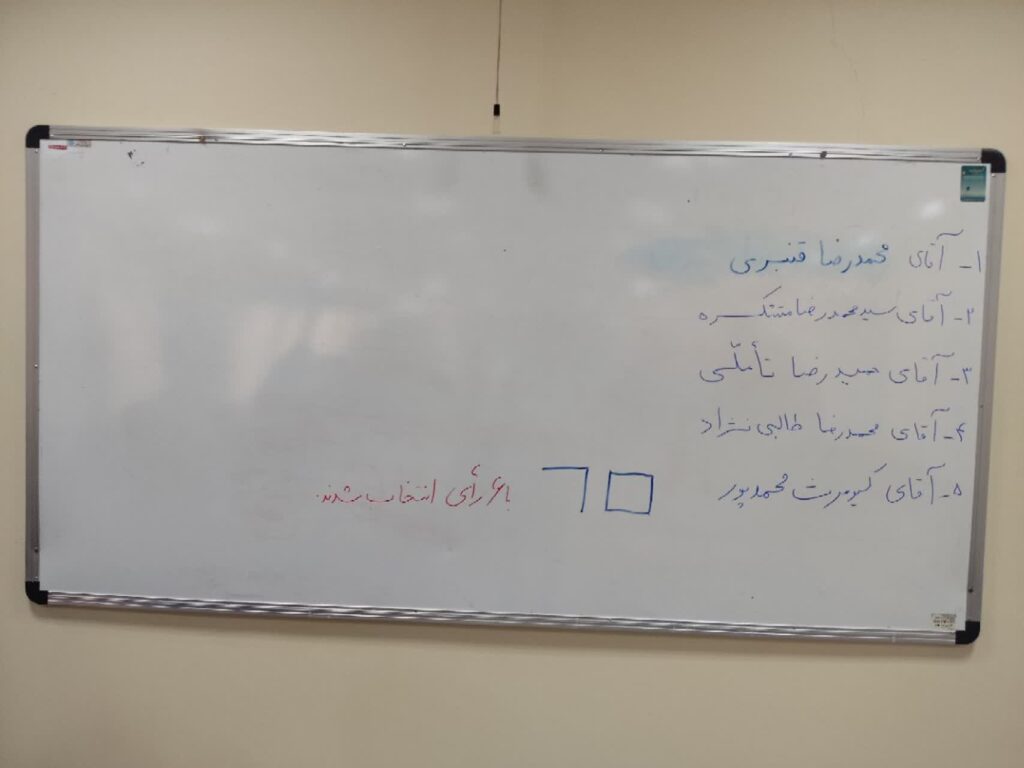 ۱- آقای محمدرضا قنبری
۲- آقای سیدمحمدرضا متشکره
۳- آقای حمیدرضا تأملّی
۴- آقای محمدرضا طالبی نژاد
۵- آقای کیومرث محمدپور
با ۶ رأی انتخاب شدند.